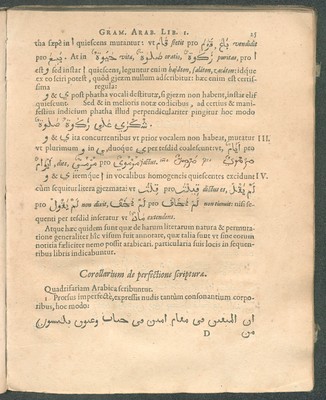 GRAM. ARAB. LIB. I. 25
tha sæpè in ا quiescens mutantur: vt قَامَ stetit pro قَوَمَ, بَاعَ vendidit
pro بَيَعَ. At in حَيٰوةٌ vita, صَلٰوةٌ oratio, زَكٰوةٌ puritas, pro ا
est و sed instar ا quiescens, leguntur enim
ex eo scriri potest, quòd gjezmum nullum adscribitur: hæc enim est certissima
regula:
و & ي post phatha vocali destitutæ, si gjezm non habent, instar elif
quiescunt. Sed & in melioris notæ codicibus, ad certius & manifestius
indicium phatha illud perpendiculariter pingitur hoc modo
و & ي ita concurrentibus vt prior vocalem non habeat, mutatur III.
vt plurimum و in ي, duoque ي per tesdid coalescunt: vt, أَيَّامٌ pro
أَيْوَامٌ, dies, مَرْمِيٌّ pro مَرْمُويٌ
و & ي itemque ا in vocalibus homogeneis quiescentes excidunt IV.
cùm sequitur litera gjezmata: vt قِلْتَ pro قِيلْتَ dictus es, لَمْ يَقُلْ
pro لَمْ يَقُولْ non dixit, لَمْ تَخَفْ pro لَمْ تَخَافْ non timuit: nisi sequenti
per tesdid inseratur vt مَادٌّ extendens.
Atque hæc quidem sunt quæ de harum literarum natura & permutatione
generaliter hîc visum fuit annotare, quæ talia sunt vt sine eorum
notitia feliciter nemo possit arabicari, particularia suis locis in sequentibus
libris indicabuntur.
Corollarium de perfectione scripturæ.
Quadrifariam Arabica scribuntur.
1 Prorsus imperfectè, expressis nudis tantùm consonantium corporibus,
hoc modo:
ان المتقين في مقام امين في جنات وعيون يلبسون
D من